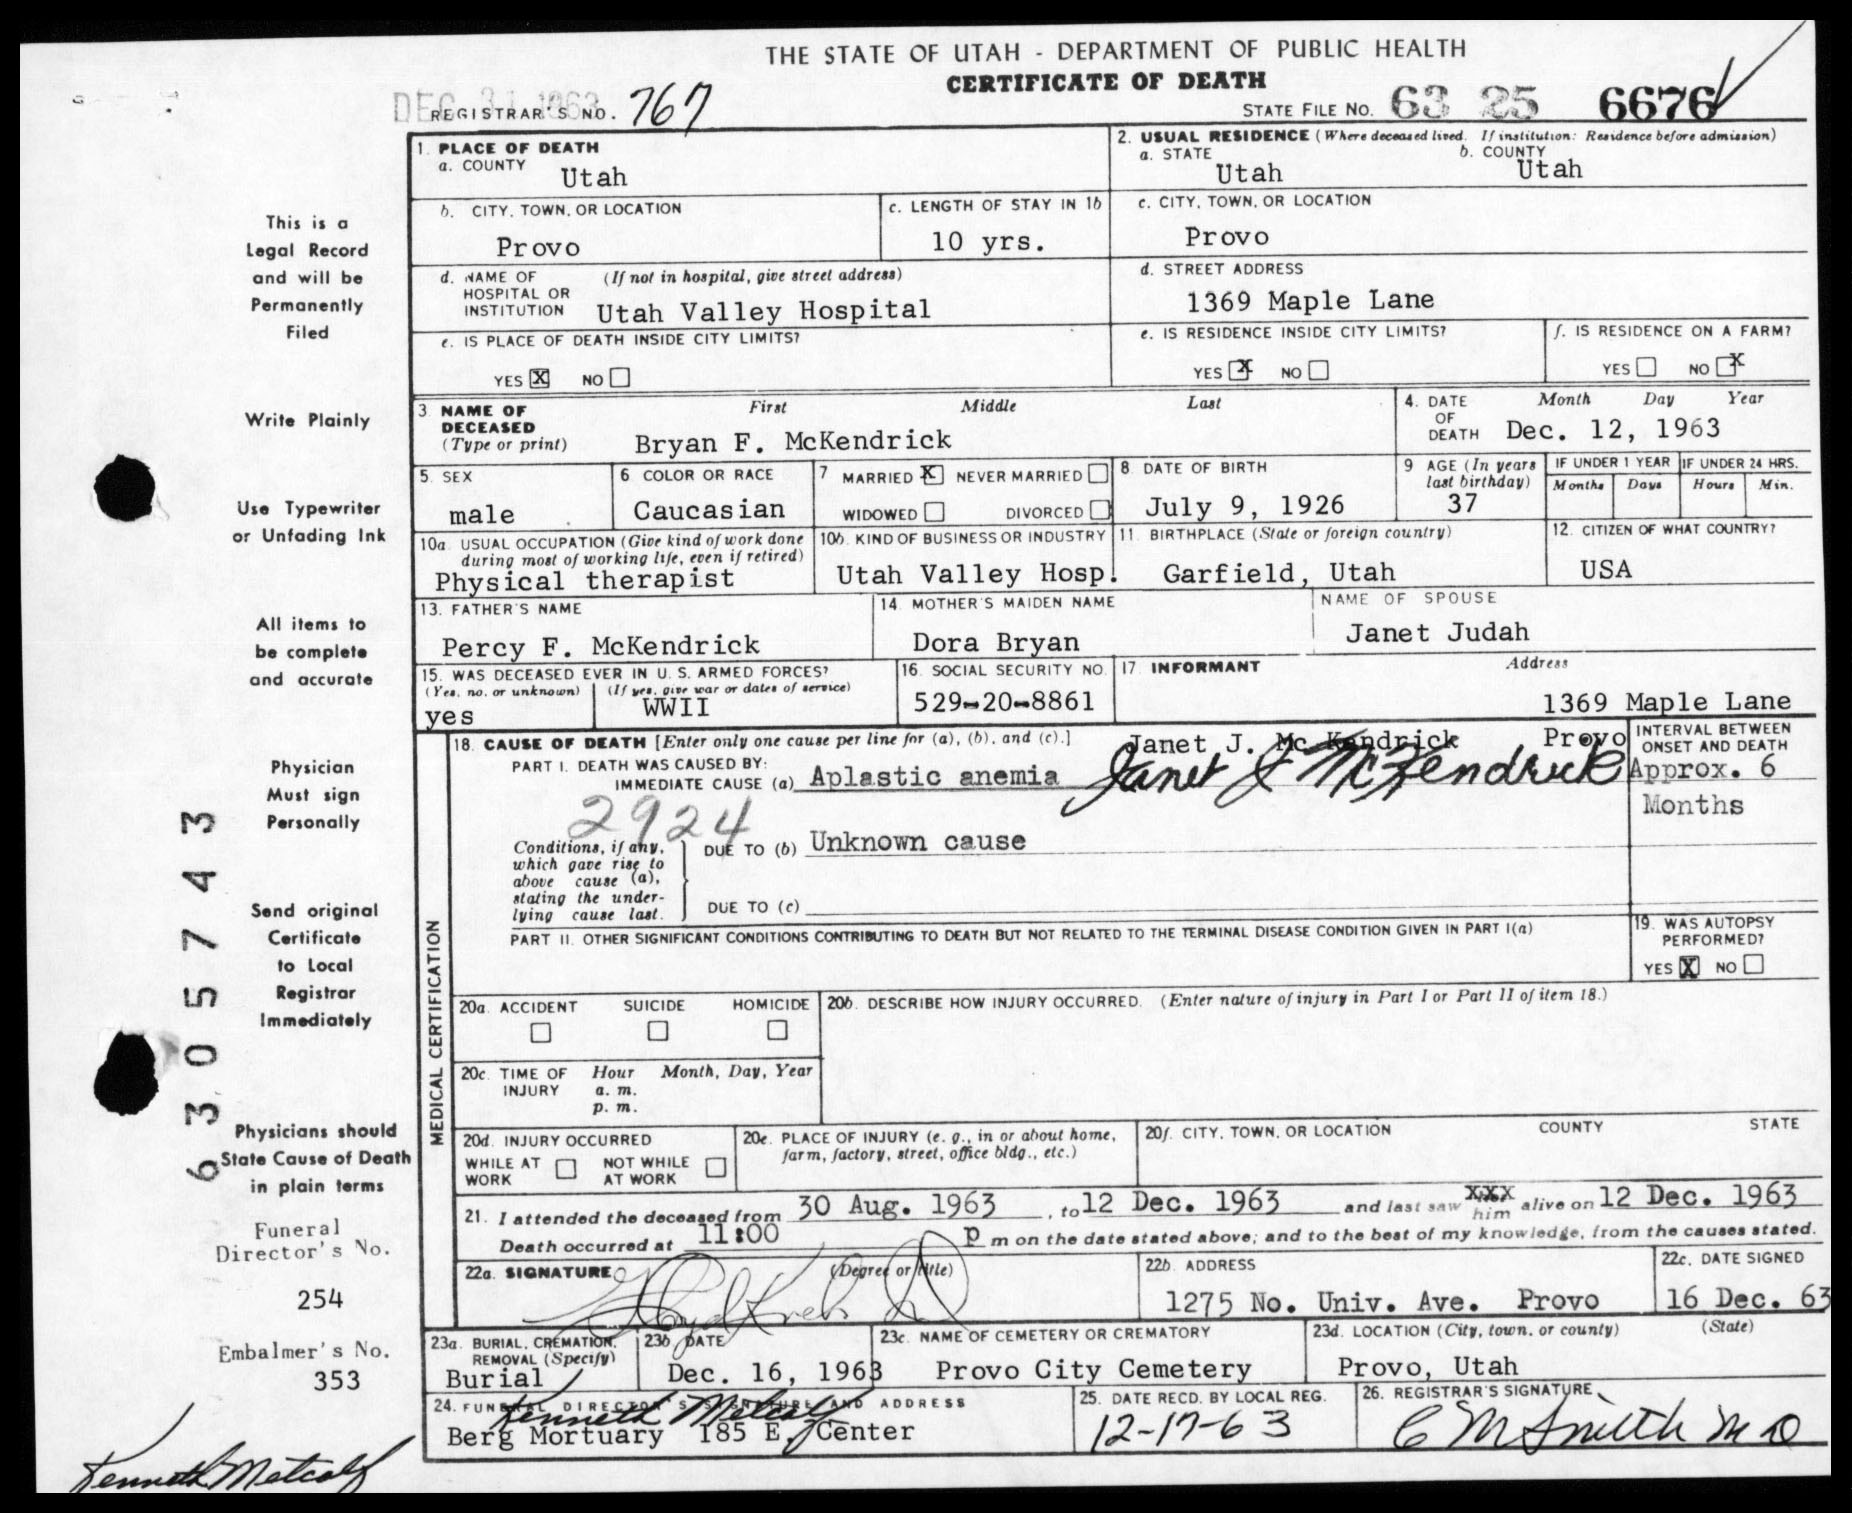 THE STATE OF UTAH - DEPARTMENT OF PUBLIC HEALTH
CERTIFICATE OF DEATH
DEC 31 1963
REGISTRAR'S NO. 767
STATE FILE NO. 63 25 6676
This is a
Legal Record
and will be
Permanently
Filed
Write Plainly
Use Typewriter
or Unfading Ink
All items to
be complete
and accurate
Physician
Must sign
Personally
Send original
Certificate
to Local
Registrar
Immediately
Physicians should
State Cause of Death
in plain terms
Funeral
Director's No.
254
Embalmer's No.
353
Kenneth Metcalf
6305743
1. PLACE OF DEATH
a. COUNTY Utah
2. USUAL RESIDENCE (Where deceased lived. If institution: Residence before admission)
a. STATE Utah
b. COUNTY Utah
b. CITY, TOWN, OR LOCATION
Provo
c. LENGTH OF STAY IN 1b
10 yrs.
c. CITY, TOWN, OR LOCATION
Provo
d. NAME OF HOSPITAL OR INSTITUTION (If not in hospital, give street address)
Utah Valley Hospital
d. STREET ADDRESS
1369 Maple Lane
e. IS PLACE OF DEATH INSIDE CITY LIMITS?
YES X NO
e. IS RESIDENCE INSIDE CITY LIMITS?
YES X NO
f. IS RESIDENCE ON A FARM?
YES NO X
3. NAME OF DECEASED (Type or print)
First Middle Last
Bryan F. McKendrick
4. DATE OF DEATH
Month Day Year
Dec. 12, 1963
5. SEX
male
6 COLOR OR RACE
Caucasian
7 MARRIED X NEVER MARRIED
WIDOWED DIVORCED
8 DATE OF BIRTH
July 9, 1926
9 AGE (In years last birthday)
37
IF UNDER 1 YEAR
Months Days
IF UNDER 24 HRS.
Hours Min.
10a. USUAL OCCUPATION (Give kind of work done
during most of working life, even if retired)
Physical therapist
10b. KIND OF BUSINESS OR INDUSTRY
Utah Valley Hosp.
11. BIRTHPLACE (State or foreign country)
Garfield, Utah
12. CITIZEN OF WHAT COUNTRY?
USA
13. FATHER'S NAME
Percy F. McKendrick
14. MOTHER'S MAIDEN NAME
Dora Bryan
NAME OF SPOUSE
Janet Judah
15. WAS DECEASED EVER IN U. S. ARMED FORCES?
(Yes, no, or unknown) (If yes, give war or dates of service)
yes WWII
16. SOCIAL SECURITY NO.
529-20-8861
17 INFORMANT Address
1369 Maple Lane
Janet J. Mc Kendrick Provo
Janet J McKendrick
MEDICAL CERTIFICATION
18. CAUSE OF DEATH [Enter only one cause per line for (a), (b), and (c).]
PART I. DEATH WAS CAUSED BY:
IMMEDIATE CAUSE (a) Aplastic anemia
INTERVAL BETWEEN
ONSET AND DEATH
Approx. 6
Months
2924
Conditions, if any,
which gave rise to
above cause (a),
stating the under-
lying cause last.
DUE TO (b) Unknown cause
DUE TO (c)
PART II. OTHER SIGNIFICANT CONDITIONS CONTRIBUTING TO DEATH BUT NOT RELATED TO THE TERMINAL DISEASE CONDITION GIVEN IN PART I(a)
19. WAS AUTOPSY
PERFORMED?
YES X NO
20a. ACCIDENT SUICIDE HOMICIDE
20b. DESCRIBE HOW INJURY OCCURRED. (Enter nature of injury in Part I or Part II of item 18.)
20c. TIME OF INJURY
Hour Month, Day, Year
a. m.
p. m.
20d. INJURY OCCURRED
WHILE AT WORK NOT WHILE AT WORK
20e. PLACE OF INJURY (e. g., in or about home,
farm, factory, street, office bldg., etc.)
20f. CITY, TOWN, OR LOCATION COUNTY STATE
21. I attended the deceased from 30 Aug. 1963, to 12 Dec. 1963 and last saw xxx him alive on 12 Dec. 1963
Death occurred at 11:00 p m on the date stated above; and to the best of my knowledge, from the causes stated.
22a. SIGNATURE (Degree or title)
22b. ADDRESS
1275 No. Univ. Ave. Provo
22c. DATE SIGNED
16 Dec. 63
23a. BURIAL, CREMATION,
REMOVAL (Specify)
Burial
23b. DATE
Dec. 16, 1963
23c. NAME OF CEMETERY OR CREMATORY
Provo City Cemetery
23d. LOCATION (City, town, or county) (State)
Provo, Utah
24. FUNERAL DIRECTOR'S SIGNATURE AND ADDRESS
Kenneth Metcalf
Berg Mortuary 185 E. Center
25. DATE RECD. BY LOCAL REG.
12-17-63
26. REGISTRAR'S SIGNATURE
C M Smith M D